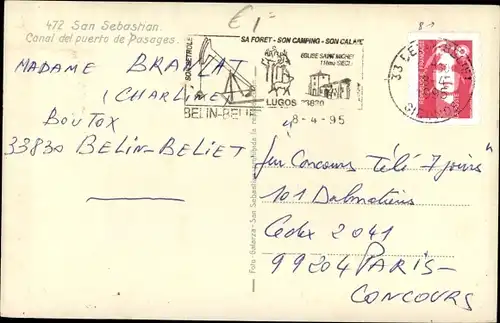 472 San Sebastian.
Canal del puerto de Pasages.
€ 1-
81
SA FORET - SON CAMPING - SON CALME
SON PETROLE
EGLISE SAINT MICHEL
11ème SIECLE
LUGOS 33830
BELIN-BELIET
8-4-95
33
MADAME BRANLAT
(CHARLINE)
BOUTOX
33830 BELIN-BELIET
"Jeu Concours Télé 7 jours"
101 Dalmatiens
Cedex 2041
99204 PARIS-
CONCOURS
Foto Galarza-San Sebastian